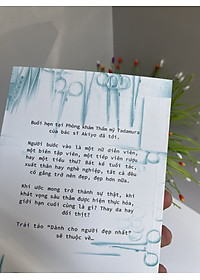 Buổi hẹn tại Phòng khám Thẩm mỹ Tadamura
của bác sĩ Akiyo đã tới.
Người bước vào là một nữ diễn viên,
một biên tập viên, một tiếp viên rượu
hay một tiểu thư? Bất kể tuổi tác,
xuất thân hay nghề nghiệp, tất cả đều
cố gắng trở nên đẹp, đẹp hơn nữa.
Khi ước mong trở thành sự thật, khi
khát vọng sâu thẳm được hiện thực hóa,
giới hạn cuối cùng là gì? Thay da hay
đổi thịt?
Trái táo "Dành cho người đẹp nhất"
sẽ thuộc về…